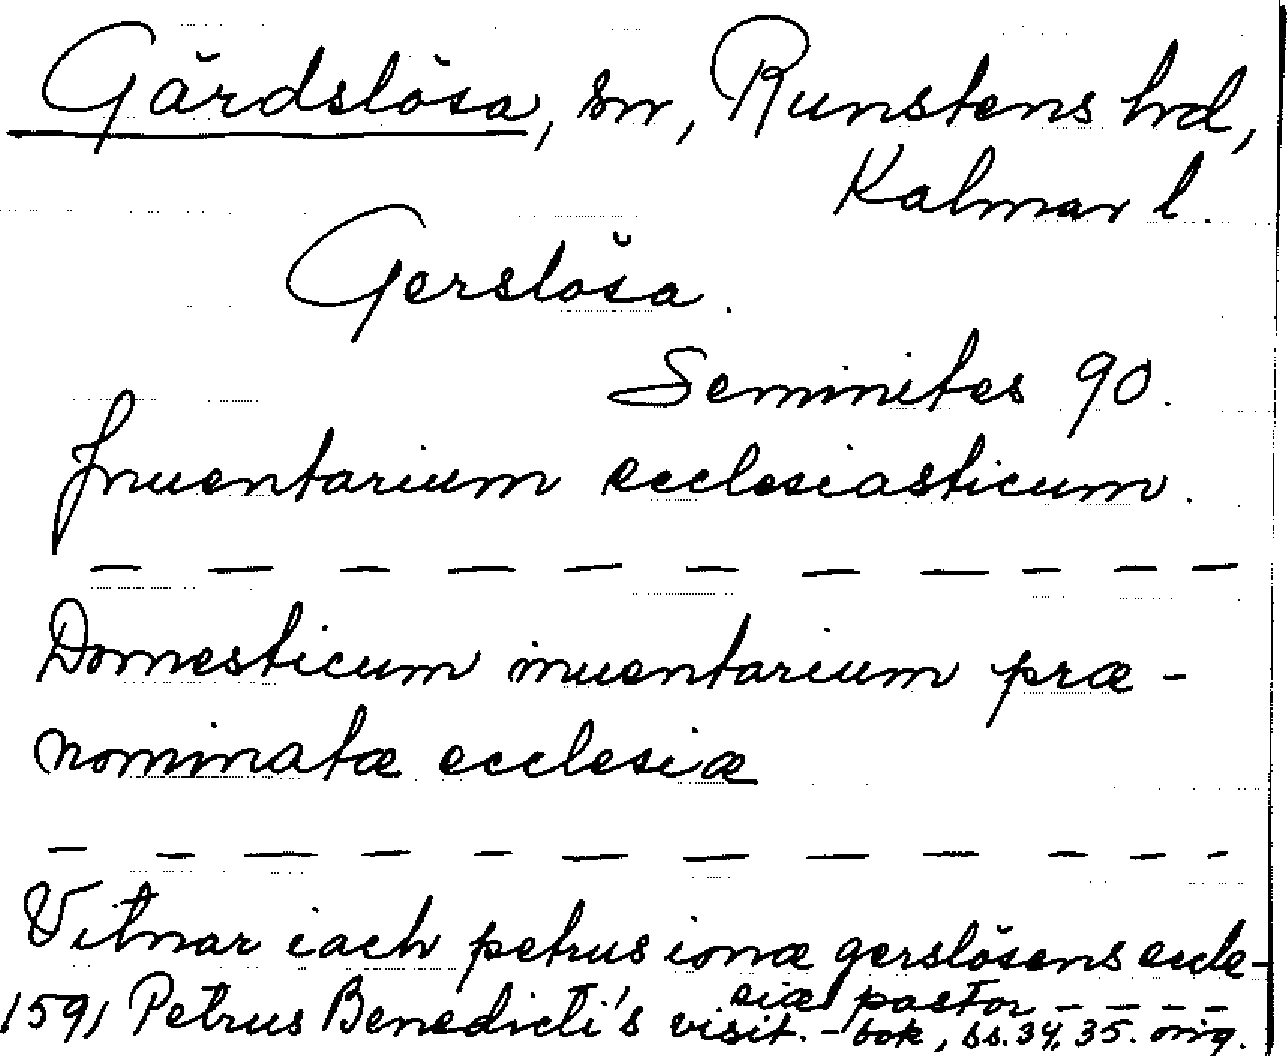 Gärdslösa, sn, Runstens hrd,
Kalmar l.
Gerslösa.
Seminites 90.
Inuentarium ecclesiasticum.
— — — — — — — — — — —
Domesticum inuentarium præ-
nominatæ ecclesiæ
— — — — — — — — — — — —
Vitnar iach petrus ionæ gerslösens eccle-
siæ pastor - - - -
1591 Petrus Benedicti's visit.-bok, ss. 34, 35. orig.